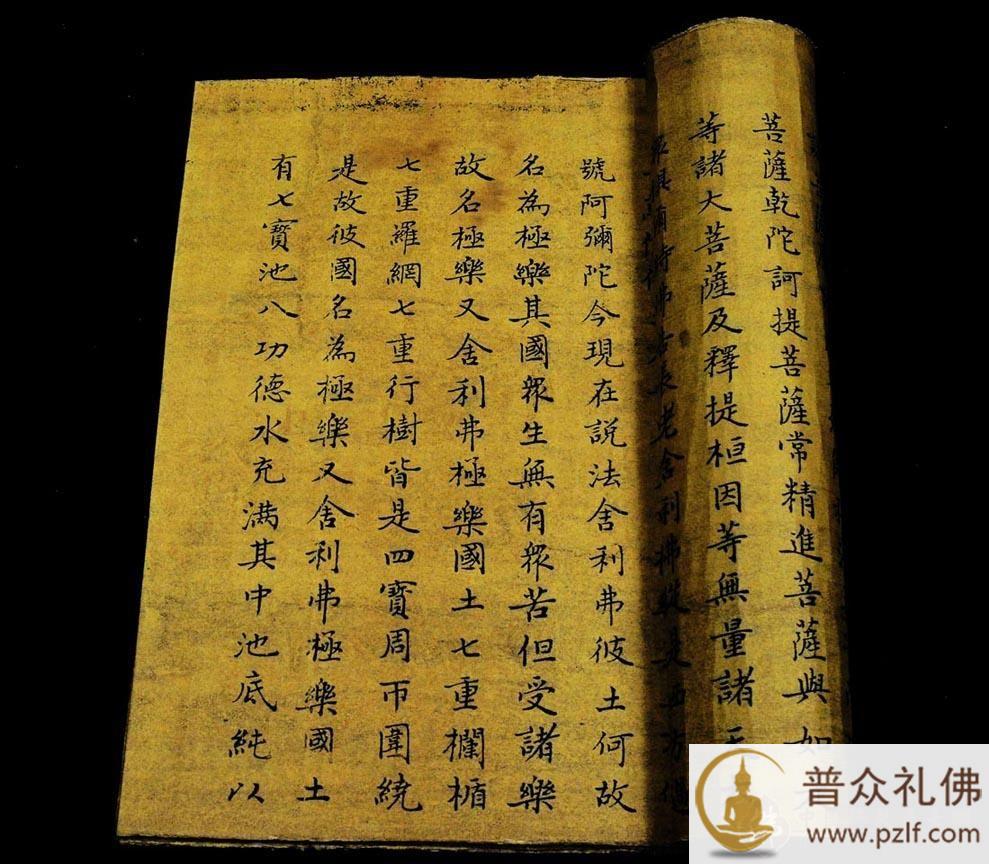 菩薩乾陀訶提菩薩常精進菩薩與如
等諸大菩薩及釋提桓因等無量諸天
長老舍利弗從是西方過
號阿彌陀今現在說法舍利弗彼土何故
名為極樂其國衆生無有衆苦但受諸樂
故名極樂又舍利弗極樂國土七重欄楯
七重羅網七重行樹皆是四寶周帀圍繞
是故彼國名為極樂又舍利弗極樂國土
有七寶池八功德水充滿其中池底純以
普众礼佛
www.pzlf.com